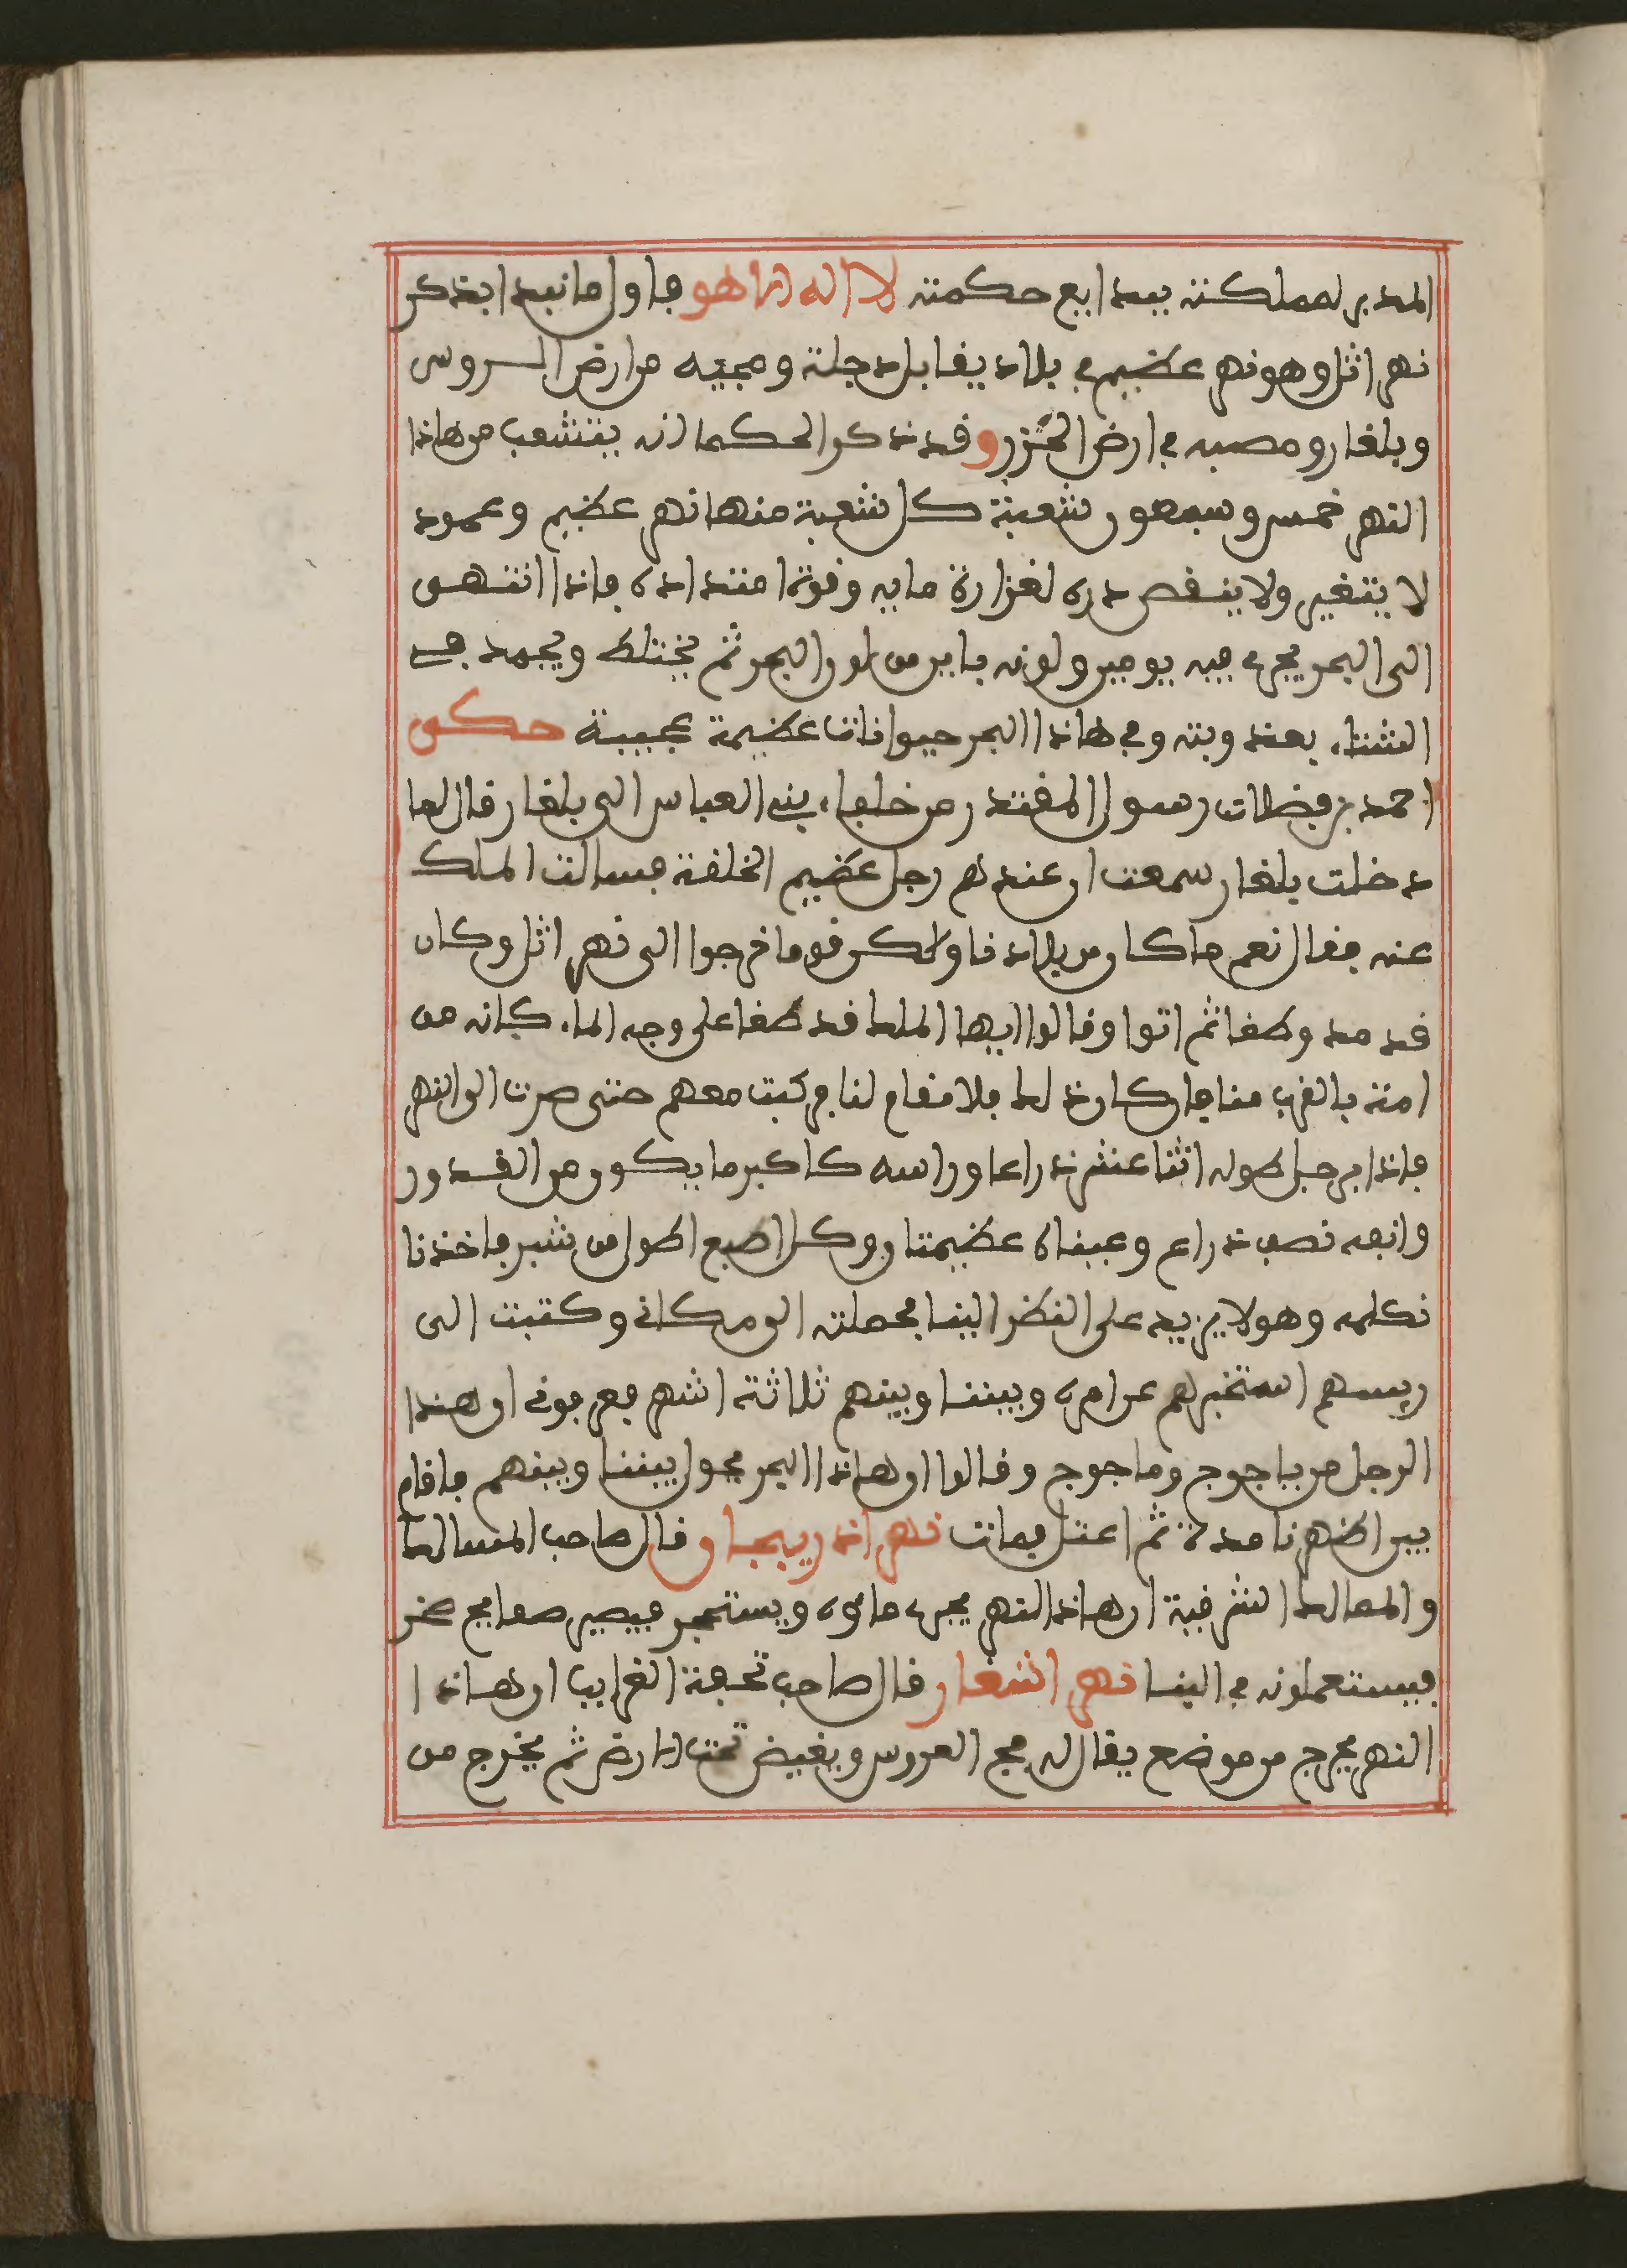 المدبر لمملكته ببدايع حكمته لا اله الا هو فاول ما نبدا بذكر
نهر اثل وهو نهر عظيم في بلاد يقابل دجلة ومجيه من ارض الروس
وبلغار ومصبه في ارض الخزر وقد ذكر الحكما انه يتشعب من هاذا
النهر خمس وسبعون شعبة كل شعبة منها نهر عظيم وعمود
لا يتغير ولا ينقص دره لغزارة مايه وقوة امتداده فاذا انتهى
الى البحر يجري فيه يومين ولونه باين من لون البحر ثم يختلط ويجمد في
الشتاء بعذوبته وفي هاذا البحر حيوانات عظيمة عجيبة حكى
احمد بن فضلان رسول المقتدر من خلفاء بني العباس الى بلغار قال لما
دخلت بلغار سمعت ان عندهم رجل عظيم الخلقة فسالت الملك
عنه فقال نعم ما كان من بلادنا ولكن قوما خرجوا الى نهر اثل وكان
قد مد وطغا ثم اتوا وقالوا ايها الملك قد طفا على وجه الماء كانه من
امة بالقرب منا فان كان ذلك فلا مقام لنا فركبت معهم حتى صرت الى النهر
فاذا برجل طوله اثنا عشر ذراعا وراسه كاكبر ما يكون من القدور
وانفه نصف ذراع وعيناه عظيمتان وكل اصبع اطول من شبر فاخذنا
نكلمه وهو لا يزيد على النظر الينا فحملته الى مكاني وكتبت الى
ريسهم استخبرهم عن امره وبيننا وبينهم ثلاثة اشهر فعرفوني ان هذا
الرجل من ياجوج وماجوج وقالوا ان هاذا البحر يحول بيننا وبينهم فاقام
بين اظهرنا مدة ثم اعتل فمات نهر اذربيجان قال صاحب المسالك
والممالك الشرقية ان هاذا النهر يجري ماؤه ويستحجر فيصير صفايح صخر
فيستعملونه في البنا نهر اشعار قال صاحب تحفة الغرايب ان هاذا
النهر يخرج من موضع يقال له فج العروس ويغيض تحت الارض ثم يخرج من